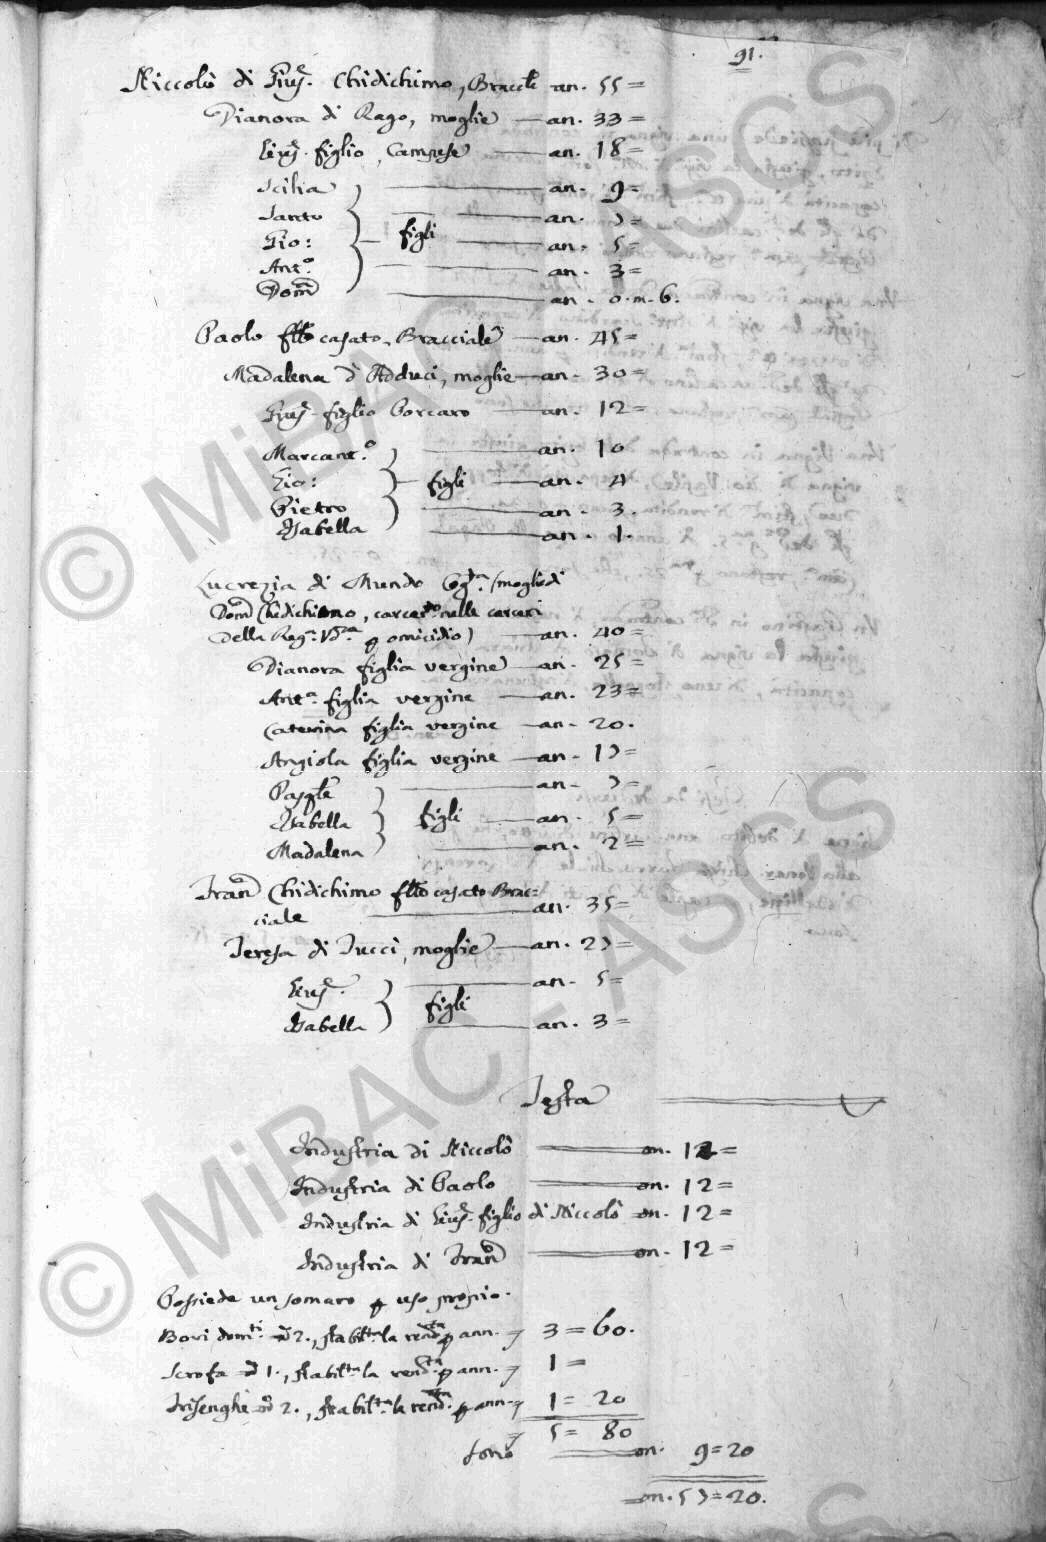 91.
Niccolò di Gius.e Chidichimo, Bracc.le an. 55=
Dianora di Rago, moglie — an. 33=
Gius.e figlio, Campese — an. 18=
Scilia — an. 9=
Santo — an. 7=
Gio: — figli — an. 5=
Ant.o — an. 3=
Dom.co — an. 0. m. 6.
Paolo fllo casato, Bracciale — an. 45=
Madalena d'Adduci, moglie — an. 30=
Gius.e figlio Porcaro — an. 12=
Marcant.o — an. 10
Gio: — figli — an. 4
Pietro — an. 3.
Isabella — an. 1.
Lucrezia di Mundo (moglie di
Dom.co Chidichimo, carcer.to nelle carceri
della Reg.a Ud.za p omicidio) — an. 40=
Dianora figlia vergine — an. 25=
Ant.a figlia vergine — an. 23=
Caterina figlia vergine — an. 20.
Angiola figlia vergine — an. 17=
Pasq.le — an. 7=
Isabella — figli — an. 5=
Madalena — an. 2=
Fran.co Chidichimo fllo casato Brac=
ciale — an. 35=
Teresa di Tucci, moglie — an. 27=
Gius.e — an. 5=
figli
Isabella — an. 3=
Testa
Industria di Niccolò — on. 12=
Industria di Paolo — on. 12=
Industria di Gius.e figlio di Niccolò on. 12=
Industria di Fran.co — on. 12=
Possiede un somaro p uso proprio.
Bovi dom.ti n.o 2., stabil.ta la rend.ta p ann. 3=60.
Scrofa n.o 1., stabil.ta la rend.ta p ann. 1=
Trisenghe n.o 2., stabil.ta la rend.ta p ann. 1=20
5=80
sono — on. 9=20
on. 57=20.
© MiBAC - ASCS
© MiBAC - ASCS